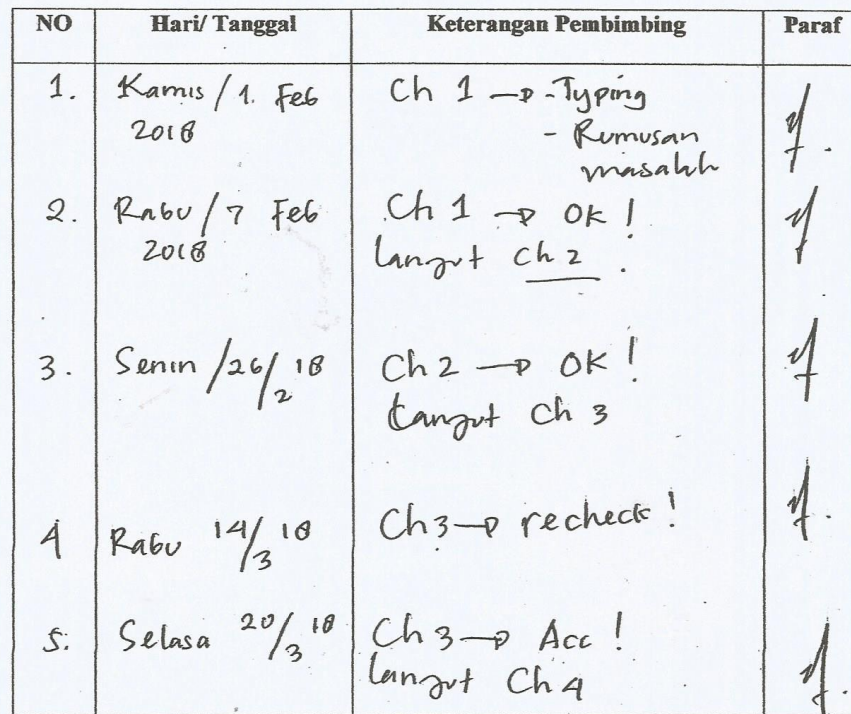 NO Hari/ Tanggal Keterangan Pembimbing Paraf
1. Kamis / 1. Feb Ch 1 → - Typing
2018 - Rumusan
masalah
2. Rabu / 7 Feb Ch 1 → OK !
2018 lanjut Ch 2 .
3. Senin / 26/2 18 Ch 2 → OK !
lanjut Ch 3
4 Rabu 14/3 18 Ch 3 → recheck !
5. Selasa 20/3 18 Ch 3 → Acc !
lanjut Ch 4